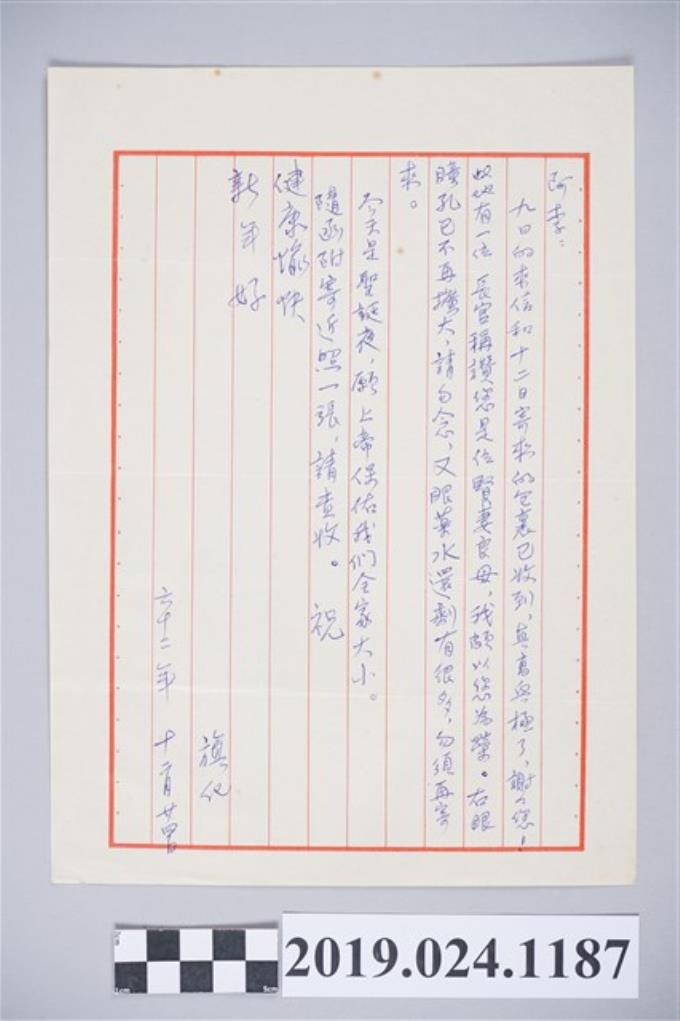 阿李：
九日的來信和十二日寄來的包裹已收到，真高興極了，謝々您！
此地有一位 長官稱讚您是位賢妻良母，我頗以您為榮。右眼
瞳孔已不再擴大，請勿念，又眼藥水還剩有很多，勿須再寄
來。
今天是聖誕夜，願上帝保佑我们全家大小。
隨函附寄近照一張，請查收。 祝
健康愉快
新年好
旗化
六十二年 十二月廿四日
2019.024.1187
1cm
5cm